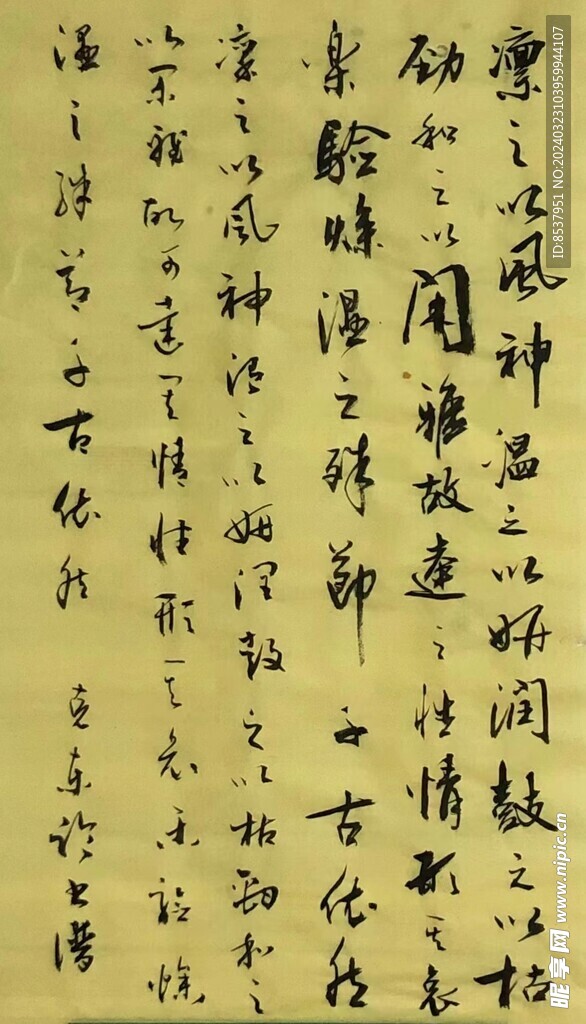 凛之以風神温之以妍润鼓之以枯
劲和之以闲雅故達之性情形其哀
楽驗燥湿之殊節千古依然
凛之以風神温之以妍润鼓之以枯勁和之
以闲雅故可達其情性形其哀乐驗燥
湿之殊節千古依然 克东临书谱
ID:8537951 NO:20240323103959944107
昵享网 www.nipic.cn